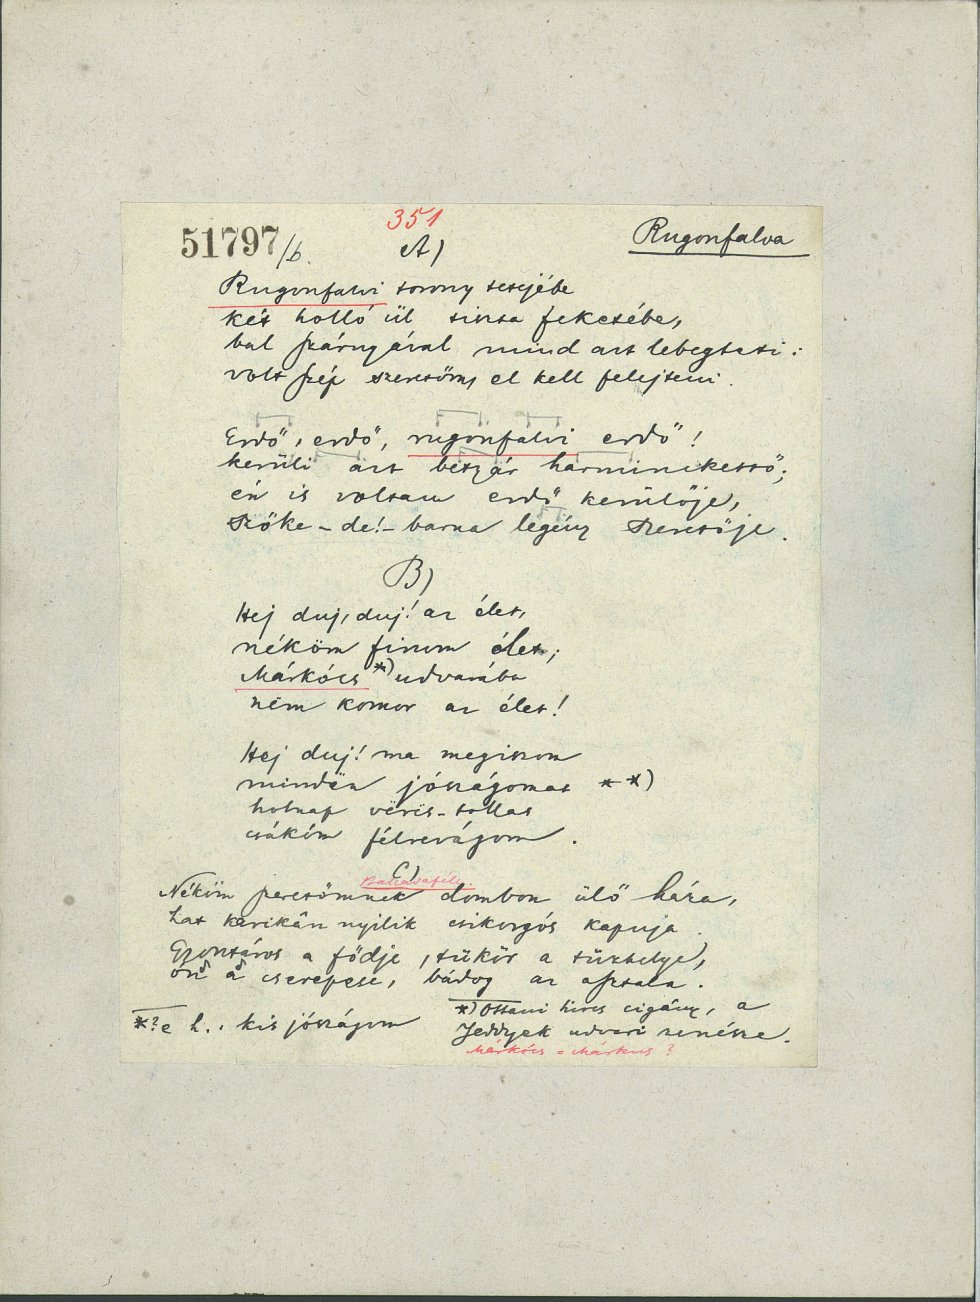 351
51797/b.
A)
Rugonfalva
Rugonfalvi torony tetejébe
két holló ül tiszta feketébe,
bal szárnyával mind azt lebegteti:
volt szép szeretőm, el kell felejteni.
Erdő, erdő, rugonfalvi erdő!
kerüli azt betyár harminckettő;
én is voltam erdő kerülője,
Szőke – de! – barna legény szeretője.
B)
Hej duj, duj! az élet,
néköm finom élet;
Márkócs *) udvarába
nëm komor az élet!
Hej duj! ma megiszom
mindën jószágomat **)
holnap vërës-tollas
csákóm félrevágom.
C)
Balladaféle
Néköm szeretömnek dombon ülő háza,
hat karikán nyilik csikorgós kapuja.
Gyontáros a födje, tükör a tüzhelye,
a cserepese, bádog az asztala.
*) Ottani hires cigány, a
Jeddyek udvari zenésze.
*? e h. : kis jószágom
Márkócs = Márkus ?